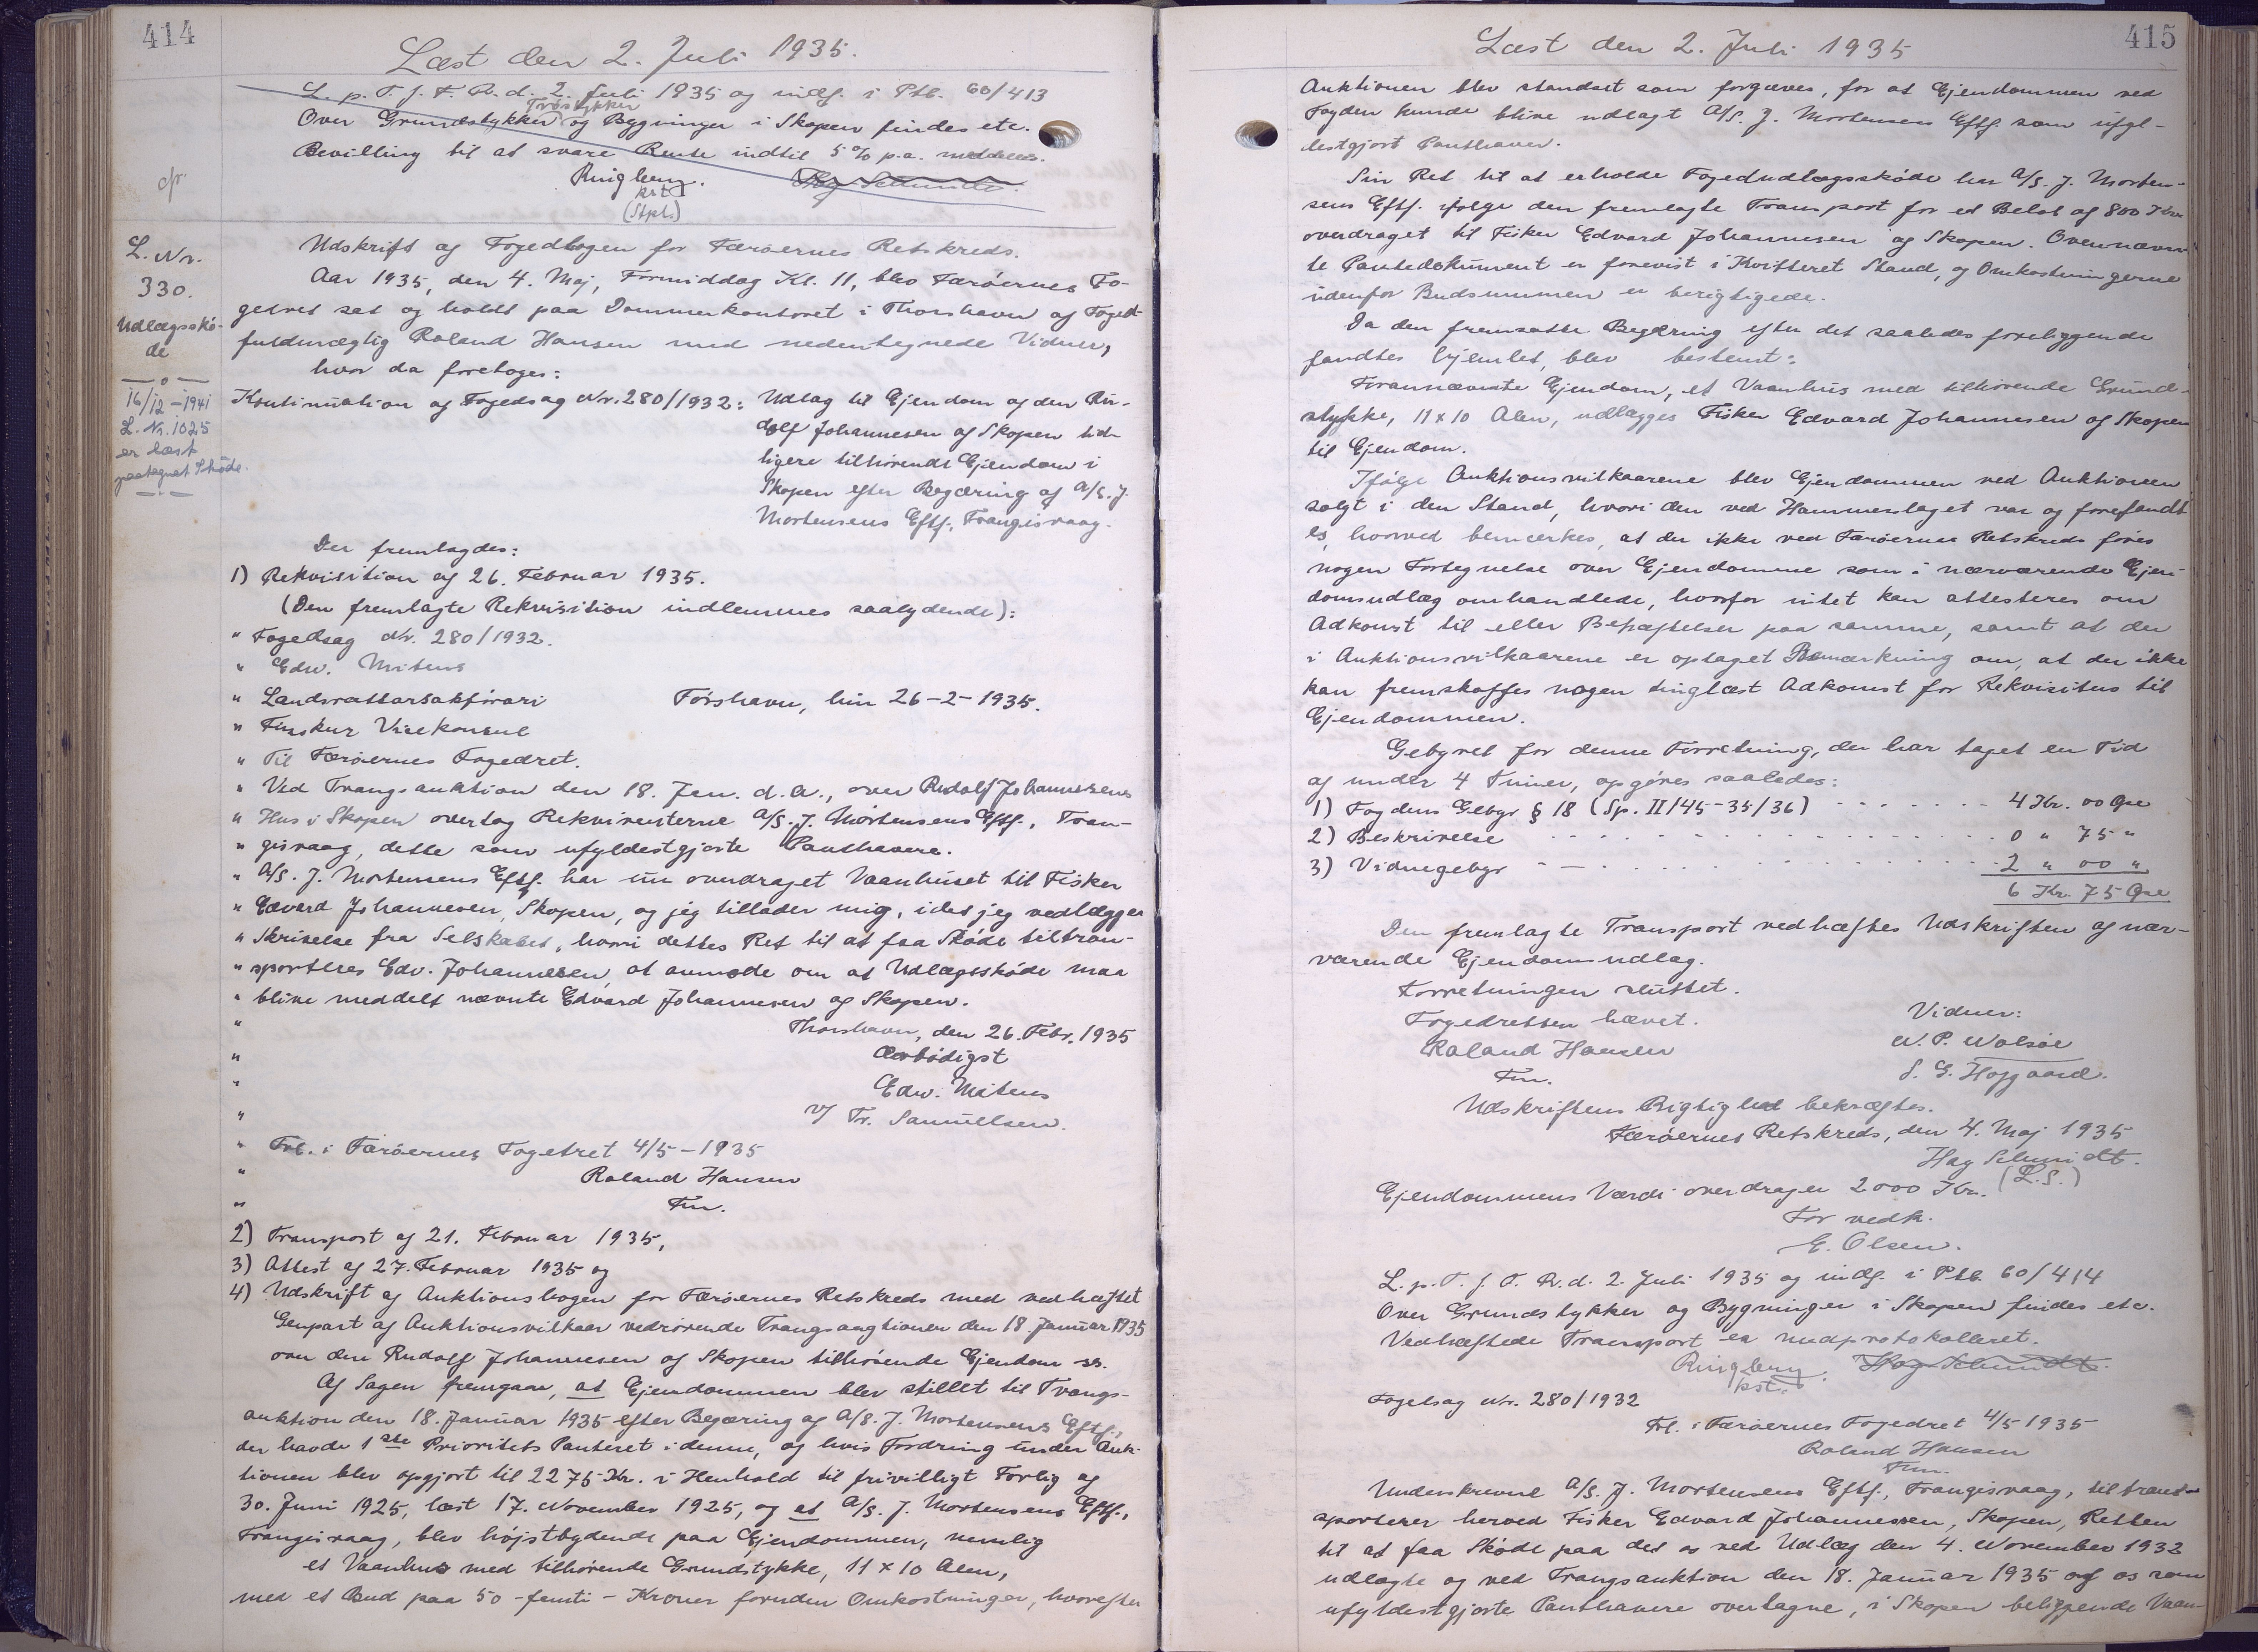 414
Læst den 2. Juli 1935.
L. p. T. f. F. R. d. 2. Juli 1935 og indf. i Ptb. 60/413
Træstykker
Over Grundstykker og Bygninger i Skopen findes etc.
Bevilling til at svare Rente indtil 5 % p.a. meddeles.
Ringberg. Hag Schmidt.
kst.
(Stpl.)
L. Nr.
330.
Udlægsskö-
de
16/12-1941
L. Nr. 1025
er læst
paategnet Sköde.
Udskrift af Fogedbogen for Færöernes Retskreds.
Aar 1935, den 4. Maj, Formiddag Kl. 11, blev Færöernes Fo-
gedret sat og holdt paa Dommerkontoret i Thorshavn af Foged-
fuldmægtig Roland Hansen med nedentegnede Vidner,
hvor da foretoges:
Kontinuation af Fogedsag Nr. 280/1932: Udlæg til Ejendom af den Ru-
dolf Johannesen af Skopen tid-
ligere tilhörende Ejendom i
Skopen efter Begæring af A/S. J.
Mortensens Eftf., Trangisvaag.
Der fremlagdes:
1) Rekvisition af 26. Februar 1935.
(Den fremlagte Rekvisition indlemmes saalydende):
" Fogedsag Nr. 280/1932.
" Edw. Mitens
" Landsrættarsakförari Tórshavn, hin 26-2-1935.
" Finskur Visekonsul
" Til Færöernes Fogedret.
" Ved Tvangsauktion den 18. Jan. d.A., over Rudolf Johannesens
" Hus i Skopen overtog Rekvirenterne A/S. J. Mortensens Eftf., Tran-
" gisvaag, dette som ufyldestgjorte Panthavere.
" A/S. J. Mortensens Eftf. har nu overdraget Vaanhuset til Fisker
" Edvard Johannesen, Skopen, og jeg tillader mig, idet jeg vedlægger
" Skrivelse fra Selskabet, hvori dettes Ret til at faa Sköde tiltran-
" sporteres Edv. Johannesen, at anmode om at Udlægsskøde maa
" blive meddelt nævnte Edvard Johannesen af Skopen.
" Thorshavn, den 26. Febr. 1935
" Ærbödigst
" Edw. Mitens
" v/ Fr. Samuelsen.
" Frl. i Færöernes Fogedret 4/5-1935
" Roland Hansen
" Fm.
2) Transport af 21. Februar 1935,
3) Attest af 27. Februar 1935 og
4) Udskrift af Auktionsbogen for Færöernes Retskreds med vedhæftet
Genpart af Auktionsvilkaar vedrörende Tvangsauktionen den 18 Januar 1935
over den Rudolf Johannesen af Skopen tilhörende Ejendom ss.
Af Sagen fremgaar, at Ejendommen blev stillet til Tvangs-
auktion den 18. Januar 1935 efter Begæring af A/S. J. Mortensens Eftf.,
der havde 1ste Prioritets Panteret i denne, og hvis Fordring under Auk-
tionen blev opgjort til 2275 Kr. i Henhold til frivilligt Forlig af
30. Juni 1925, læst 17. November 1925, og at A/S. J. Mortensens Eftf.,
Trangisvaag, blev højstbydende paa Ejendommen, nemlig
et Vaanhus med tilhörende Grundstykke, 11 x 10 Alen,
med et Bud paa 50 - femti - Kroner foruden Omkostninger, hvorefter
415
Læst den 2. Juli 1935
Auktionen blev standset som forgæves, for at Ejendommen ved
Fogden kunde blive udlagt A/S. J. Mortensens Eftf. som ufyl-
destgjort Panthaver.
Sin Ret til at erholde Fogedudlægsskøde har A/S. J. Morten-
sens Eftf. ifølge den fremlagte Transport for et Beløb af 800 Kr.
overdraget til Fisker Edvard Johannesen af Skopen. Overnævn-
te Pantedokument er forevist i Kvitteret Stand, og Omkostningerne
udenfor Budsummen er berigtigede.
Da den fremsatte Begæring efter det saaledes foreliggende
fandtes hjemlet, blev bestemt:
Forannævnte Ejendom, et Vaanhus med tilhörende Grund-
stykke, 11 x 10 Alen, udlægges Fisker Edvard Johannesen af Skopen
til Ejendom.
Ifølge Auktionsvilkaarene blev Ejendommen ved Auktionen
solgt i den Stand, hvori den ved Hammerslaget var og forefandt-
es, hvorved bemærkes, at der ikke ved Færöernes Retskreds föres
nogen Fortegnelse over Ejendomme som i nærværende Ejen-
domsudlæg omhandlede, hvorfor intet kan attesteres om
Adkomst til eller Behæftelser paa samme, samt at der
i Auktionsvilkaarene er optaget Bemærkning om, at der ikke
kan fremskaffes nogen tinglæst Adkomst for Rekvisitus til
Ejendommen.
Gebyret for denne Forretning, der har taget en Tid
af under 4 Timer, opgöres saaledes:
1) Fogdens Gebyr § 18 (Sp. II/45-35/36) 4 Kr. 00 Øre
2) Beskrivelse 0 " 75 "
3) Vidnegebyr 2 " 00 "
6 Kr. 75 Øre
Den fremlagte Transport vedhæftes Udskriften af nær-
værende Ejendomsudlæg.
Forretningen sluttet.
Fogedretten hævet. Vidner:
Roland Hansen W. P. Wolsøe
Fm. S. G. Højgaard.
Udskriftens Rigtighed bekræftes.
Færöernes Retskreds, den 4. Maj 1935
Hag Schmidt.
(L.S.)
Ejendommens Værdi overdrager 2000 Kr.
For vedk.
E. Olsen.
L. p. T. f. F. R. d. 2. Juli 1935 og indf. i Ptb. 60/414
Over Grundstykker og Bygninger i Skopen findes etc.
Vedhæftede Transport er medprotokolleret.
Ringberg. Hag Schmidt.
kst.
Fogedsag Nr. 280/1932
Frl. i Færöernes Fogedret 4/5 1935
Roland Hansen
Fm.
Underskrevne A/S. J. Mortensens Eftf., Trangisvaag, tiltrans-
sporterer herved Fisker Edvard Johannesen, Skopen, Retten
til at faa Skøde paa det os ved Udlæg den 4. November 1932
udlagte og ved Tvangsauktion den 18. Januar 1935 af os som
ufyldestgjorte Panthavere overtagne, i Skopen beliggende Vaan-